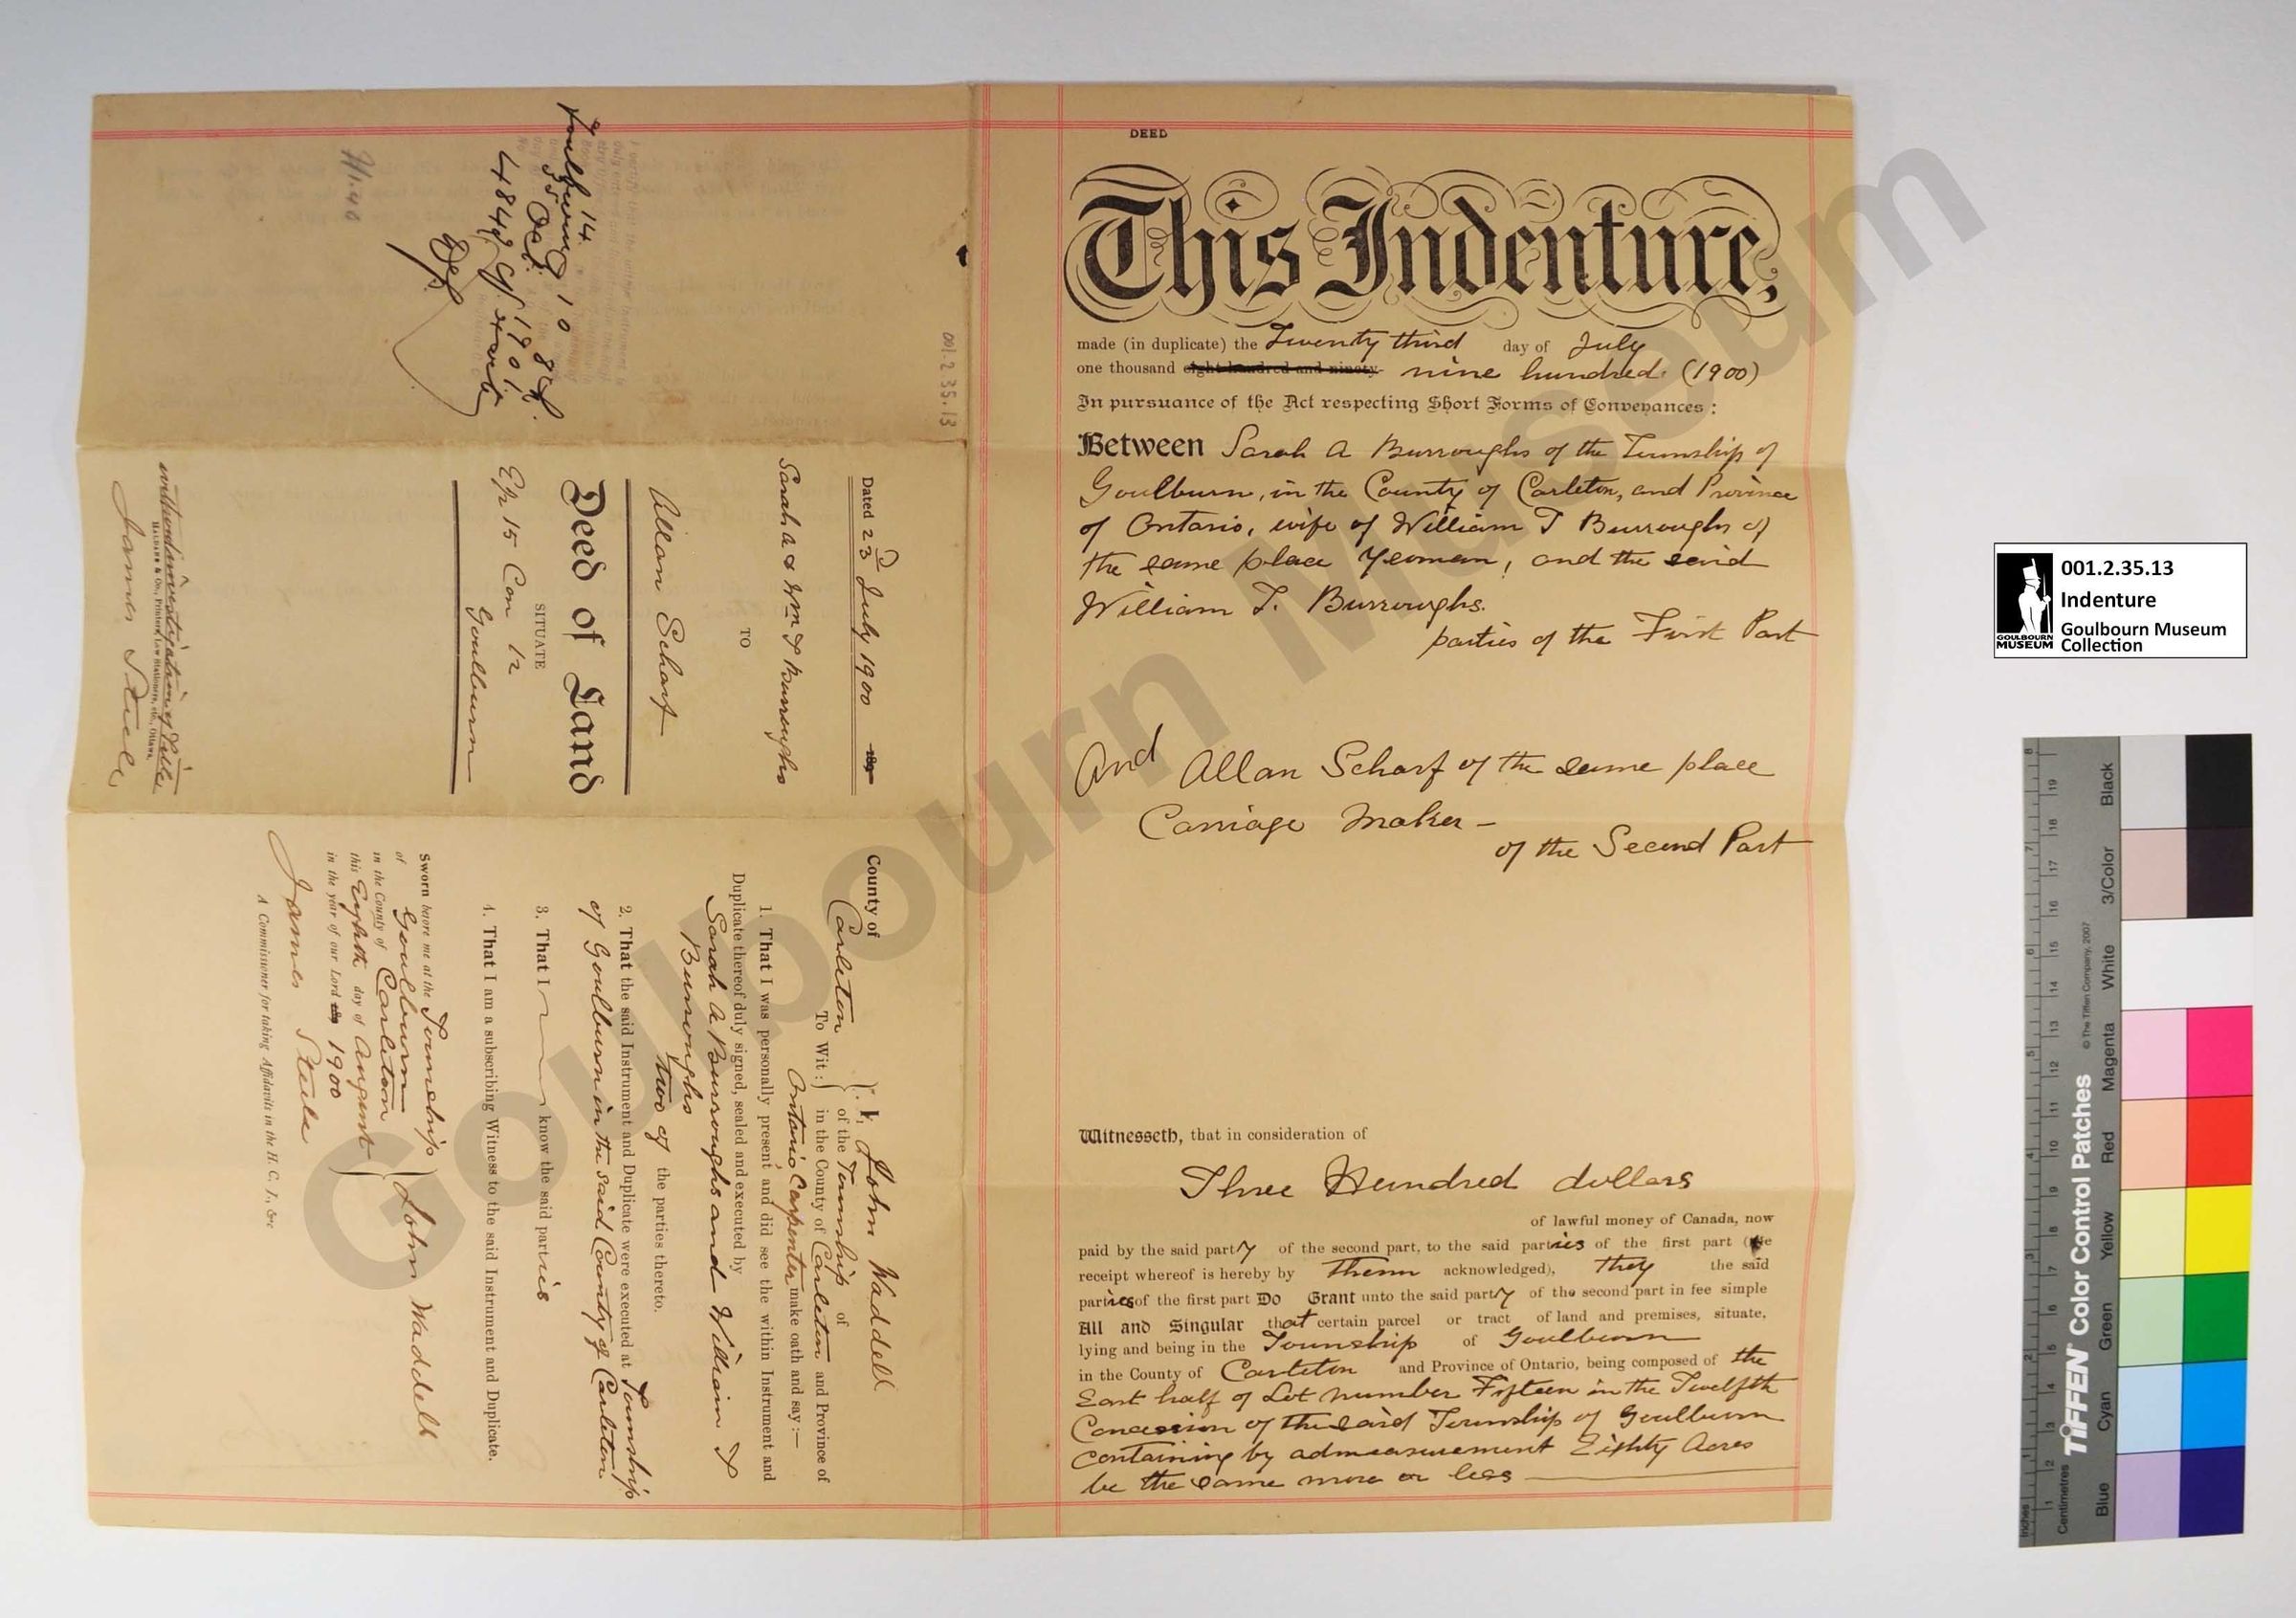 DEED
This Indenture,
made (in duplicate) the Twenty third day of July
one thousand eight hundred and ninety nine hundred (1900)
In pursuance of the Act respecting Short Forms of Conveyances :
Between Sarah A Burroughs of the Township of
Goulburn, in the County of Carleton, and Province
of Ontario, wife of William T Burroughs of
the same place Yeoman, and the said
William T. Burroughs.
parties of the First Part
And Allan Scharf of the same place
Carriage Maker —
of the Second Part
Witnesseth, that in consideration of
Three Hundred dollars
of lawful money of Canada, now
paid by the said party of the second part, to the said parties of the first part (the
receipt whereof is hereby by them acknowledged), they the said
parties of the first part Do Grant unto the said party of the second part in fee simple
All and Singular that certain parcel or tract of land and premises, situate,
lying and being in the Township of Goulburn
in the County of Carleton and Province of Ontario, being composed of the
East half of Lot number Fifteen in the Twelfth
Concession of the said Township of Goulburn
containing by admeasurement Eighty Acres
be the same more or less
001.2.35.13
Goulburn
14
4842
1901
H1.40
Dated 23 July 1900 189
Sarah A & Wm T Burroughs
TO
Allan Scharf
Deed of Land
SITUATE
E½ 15 Con 12
Goulburn
without investigation of title
James Steele
County of
Carleton
To Wit :
I, John Waddell
of the Township of
in the County of Carleton and Province of
Ontario Carpenter make oath and say :—
1. That I was personally present and did see the within Instrument and
Duplicate thereof duly signed, sealed and executed by
Sarah A Burroughs and William T
Burroughs
two of the parties thereto.
2. That the said Instrument and Duplicate were executed at Township
of Goulburn in the said County of Carleton
3. That I know the said parties
4. That I am a subscribing Witness to the said Instrument and Duplicate.
Sworn before me at the Township
of Goulburn
in the County of Carleton
this Eighth day of August
in the year of our Lord 189 1900
John Waddell
James Steele
A Commissioner for taking Affidavits in the H. C. J., &c
Goulbourn Museum
001.2.35.13
Indenture
Goulbourn Museum
Collection
GOULBOURN
MUSEUM
TIFFEN Color Control Patches
© The Tiffen Company, 2007
Inches
Centimetres
Blue
Cyan
Green
Yellow
Red
Magenta
White
3/Color
Black